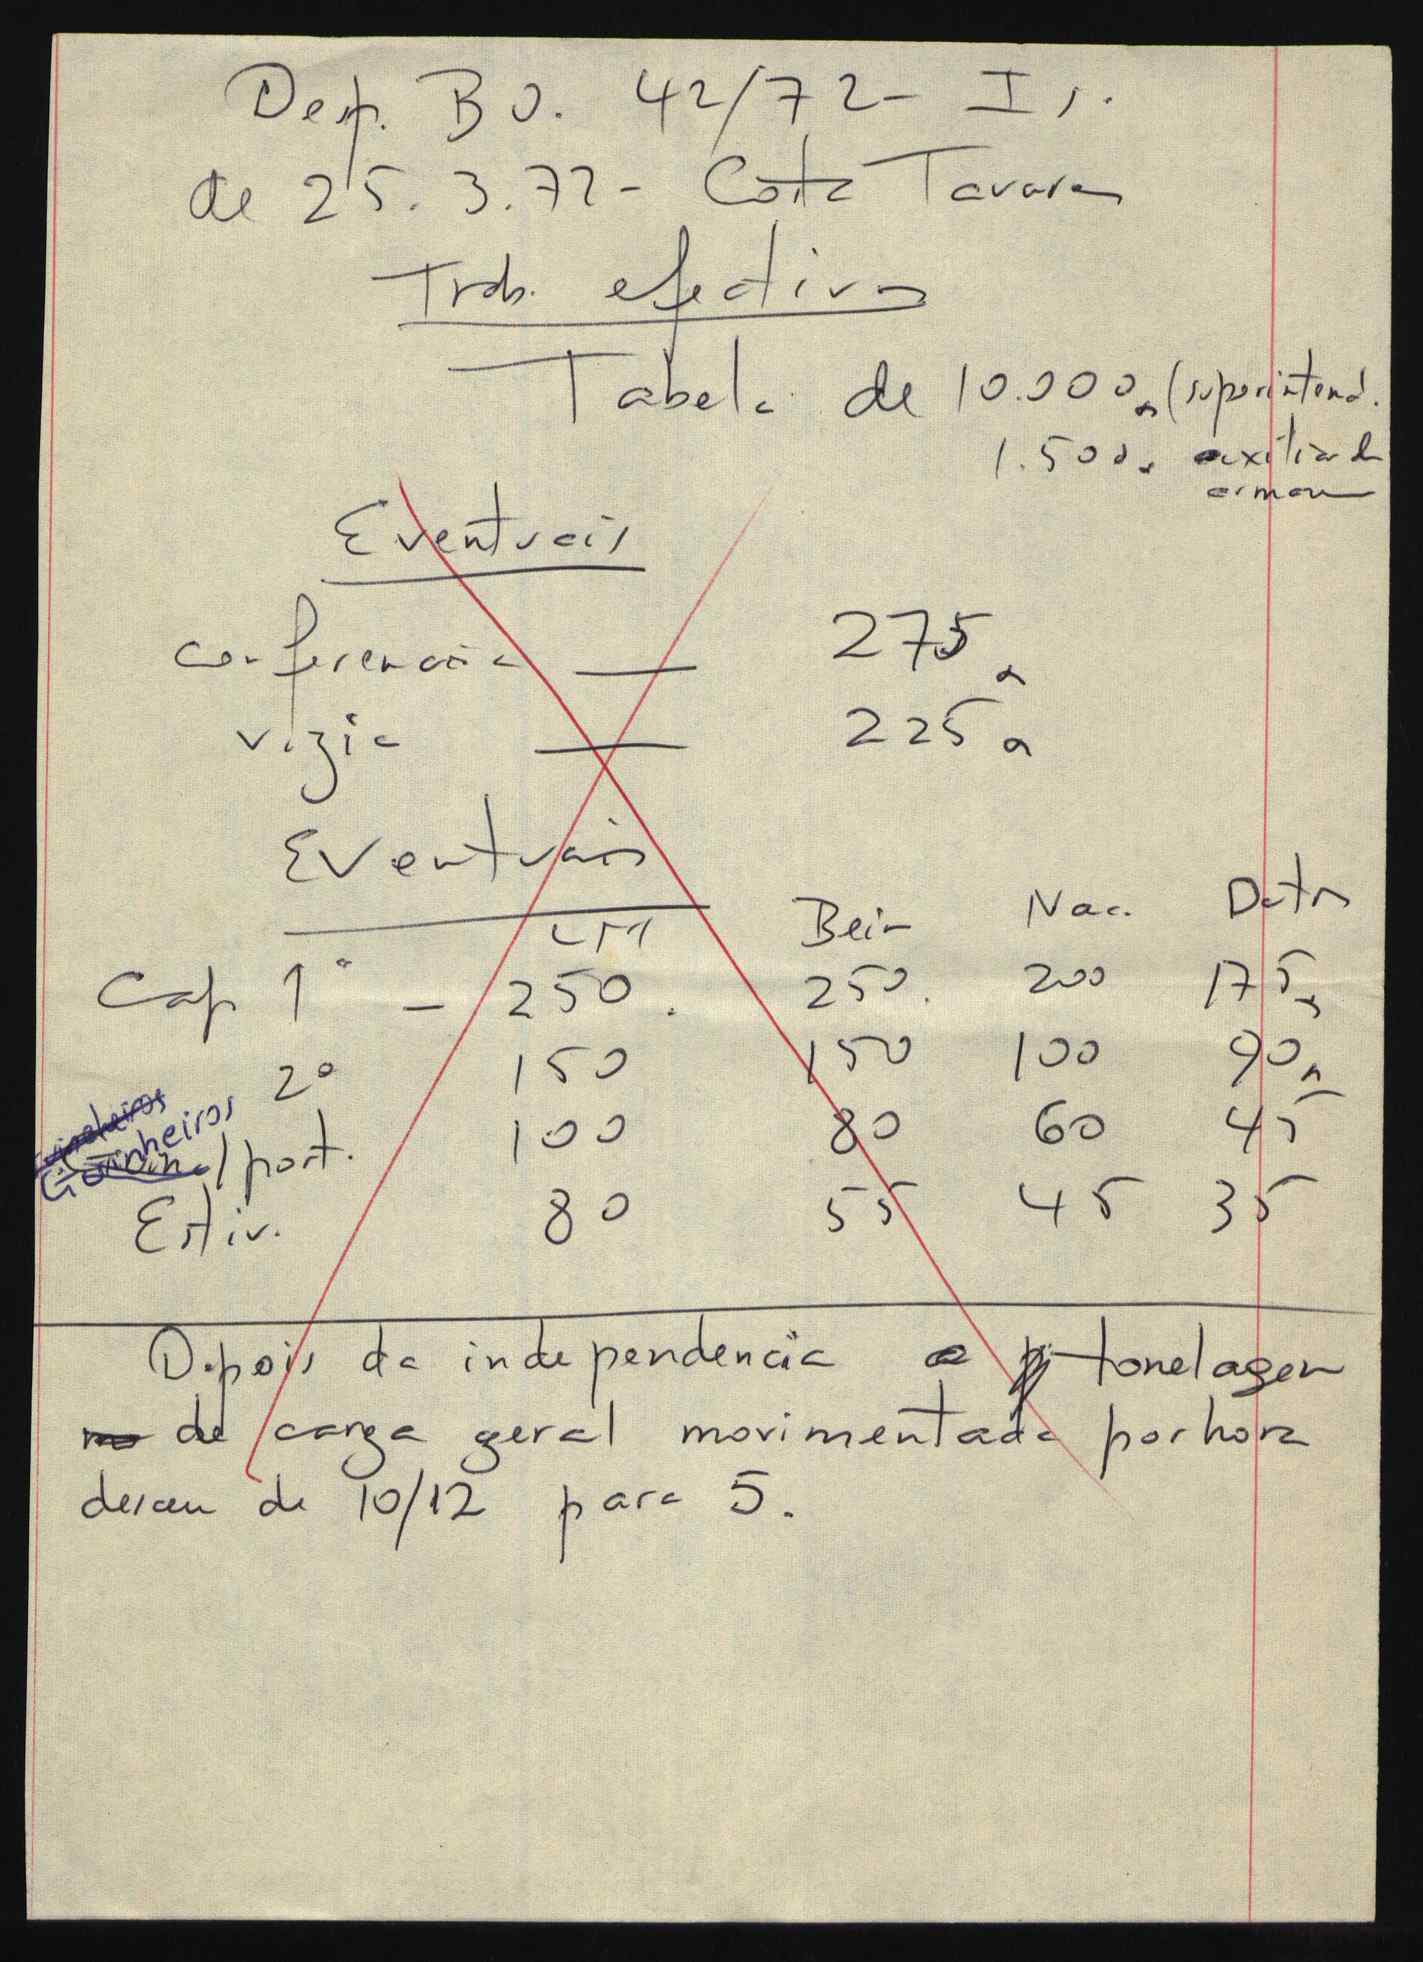 Desp. BO. 42/72 - I s.
de 25.3.72 - Costa Tavares
Trab. efectivos
Tabela de 10.000$ (superintend.
1.500$ auxiliar de
armazem
Eventuais
conferencia — 275$
vigia — 225$
Eventuais
LM Beira Nac. Outros
Cap 1º - 250. 250. 200 175$
2º 150 150 100 90$
Guincheiros
Guinheiros
/port. 100 80 60 45
Estiv. 80 55 45 35
Depois da independencia a tonelagem
de carga geral movimentada por hora
desceu de 10/12 para 5.